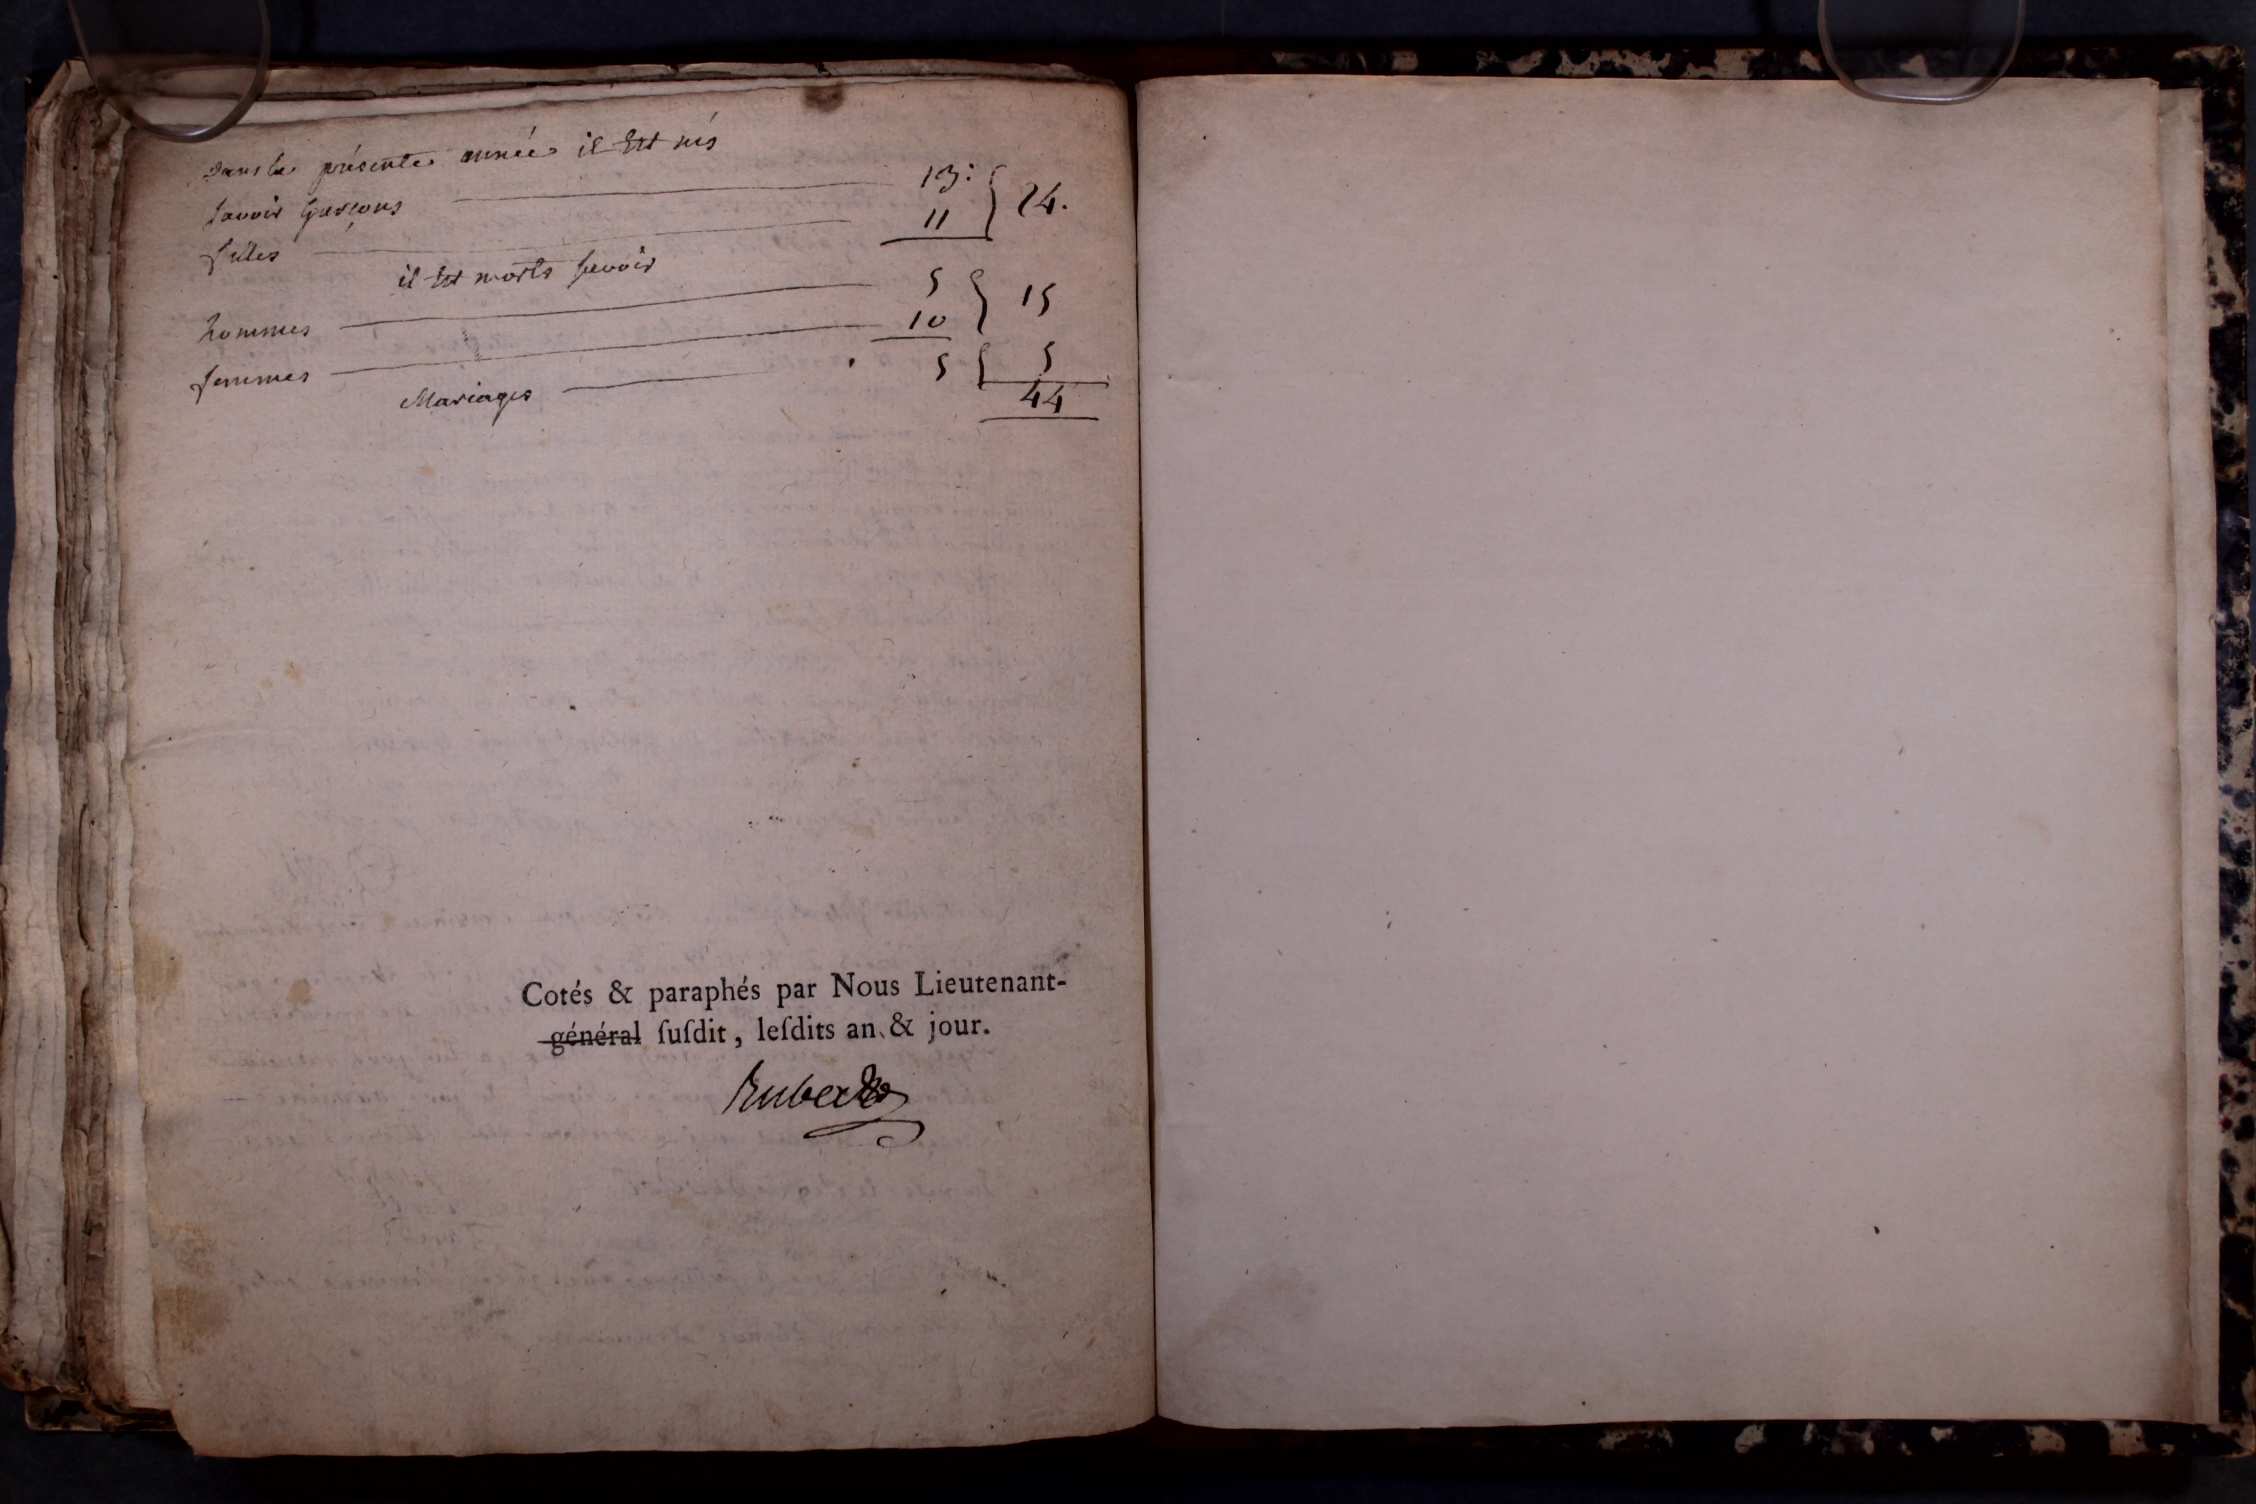 dans la présente année il Est nés
savoir Garçons 13: } 24.
filles 11
il Est morts savoir
hommes 5 } 15
femmes 10
Mariages 5 } 5
44
Cotés & paraphés par Nous Lieutenant-
général ſuſdit, leſdits an & jour.